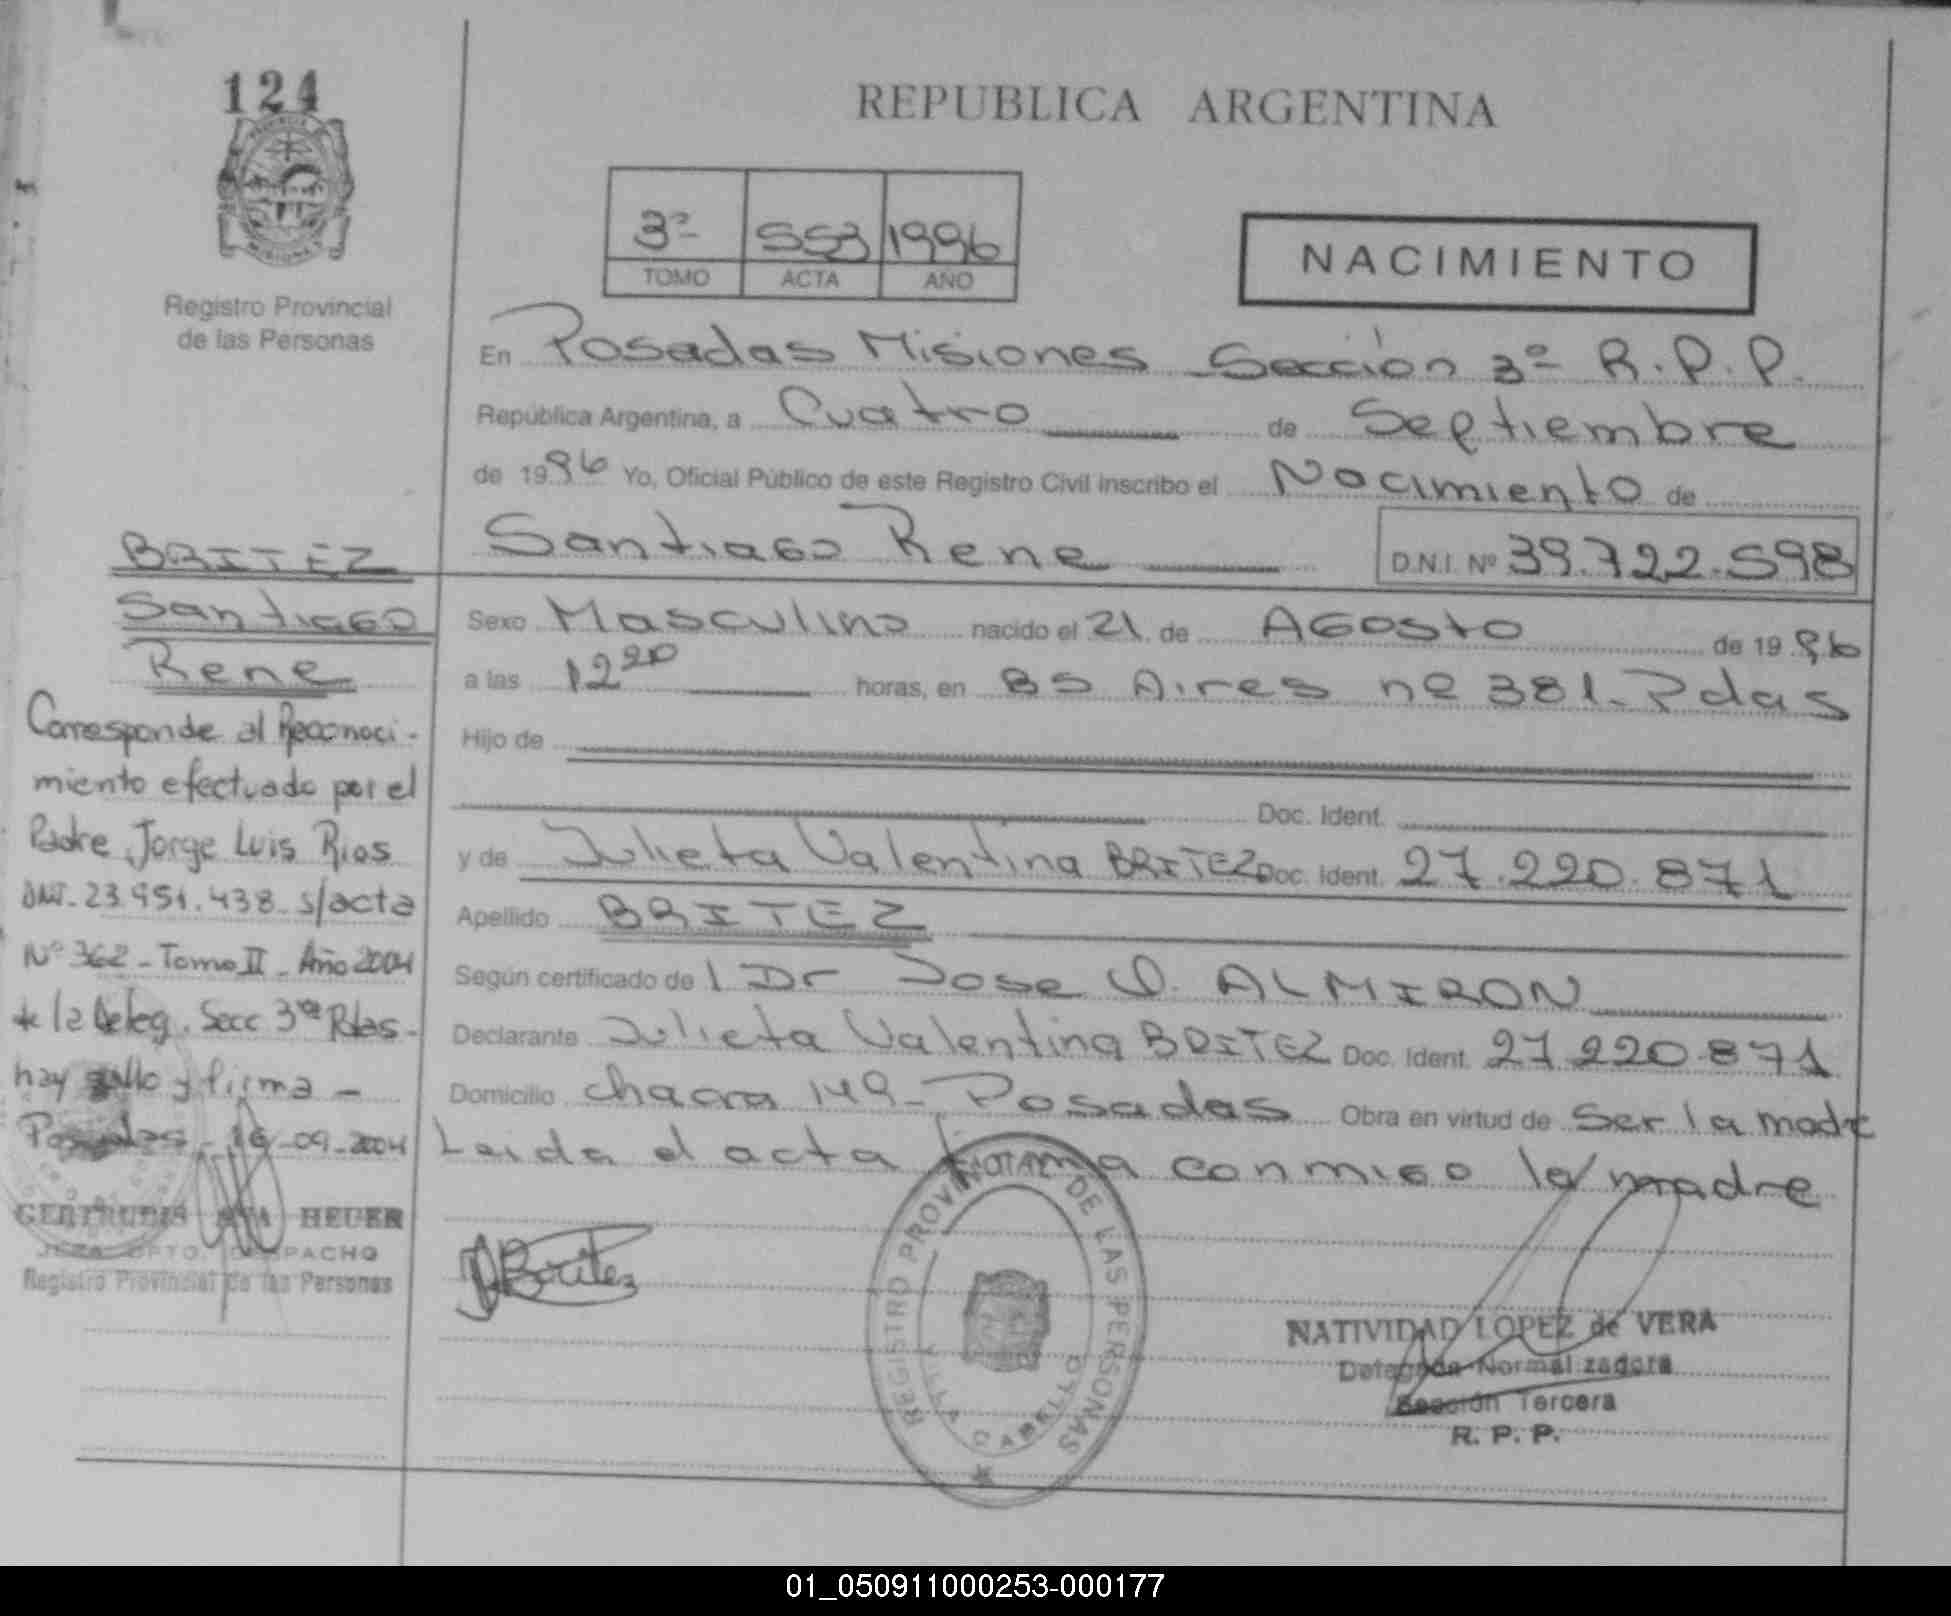 124
REPUBLICA ARGENTINA
3º 553 1996
TOMO ACTA AÑO
NACIMIENTO
Registro Provincial
de las Personas
En Posadas Misiones Sección 3º R.P.P.
República Argentina, a Cuatro de Septiembre
de 1996 Yo, Oficial Público de este Registro Civil inscribo el Nacimiento de
Santiago Rene D.N.I. Nº 39.722.598
Sexo Masculino nacido el 21 de AGosto de 1996
a las 12 20 horas, en BS Aires nº 381-Pdas
Hijo de
Doc. Ident.
y de Julieta Valentina BRITEZ Doc. Ident. 27.220.871
Apellido BRITEZ
Según certificado de l Dr Jose O. ALMIRON
Declarante Julieta Valentina BRITEZ Doc. Ident. 27 220.871
Domicilio chacra 149-Posadas Obra en virtud de Ser la madre
Leida el acta firma conmigo la madre
BRITEZ
Santiago
Rene
Corresponde al Reconoci-
miento efectuado por el
Padre Jorge Luis Rios
DNI-23.951.438 s/acta
Nº 362-Tomo II-Año 2004
de la Deleg. Secc 3ª Pdas-
hay sello y firma-
Posadas-16-09-2004
GERTRUDIS HEUER
JEFA DPTO. DESPACHO
Registro Provincial de las Personas
Britez
REGISTRO PROVINCIAL DE LAS PERSONAS
VILLA CABELLO
NATIVIDAD LOPEZ de VERA
Delegada Normalizadora
Sección Tercera
R. P. P.
01_050911000253-000177